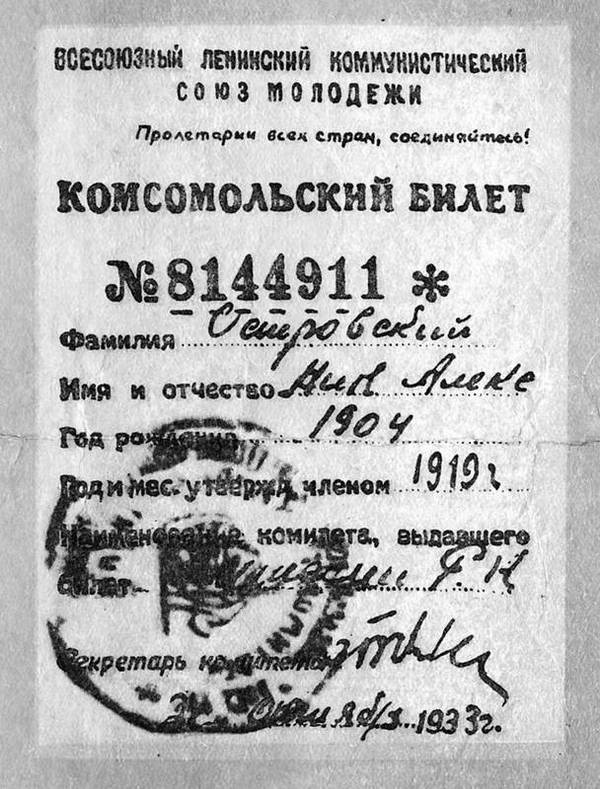 ВСЕСОЮЗНЫЙ ЛЕНИНСКИЙ КОММУНИСТИЧЕСКИЙ
СОЮЗ МОЛОДЕЖИ
Пролетарии всех стран, соединяйтесь!
КОМСОМОЛЬСКИЙ БИЛЕТ
№8144911 *
Фамилия Островский
Имя и отчество Ник Алекс
Год рождения 1904
Год и мес. утвержд. членом 1919 г
Наименование комитета, выдавшего
билет Р.К
Секретарь комитета
октября 1933г.